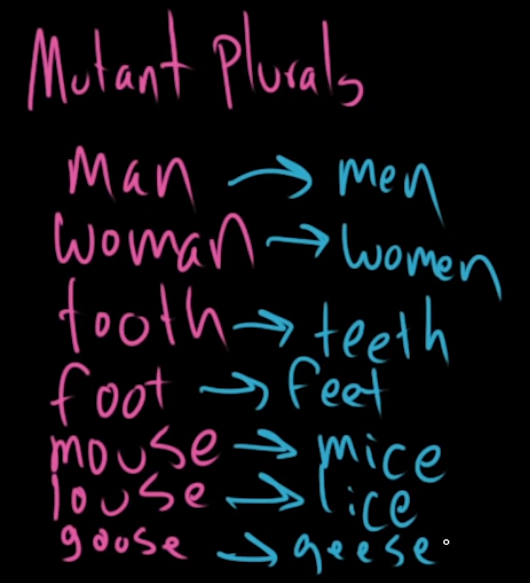 Mutant Plurals
man → men
woman → women
tooth → teeth
foot → feet
mouse → mice
louse → lice
goose → geese